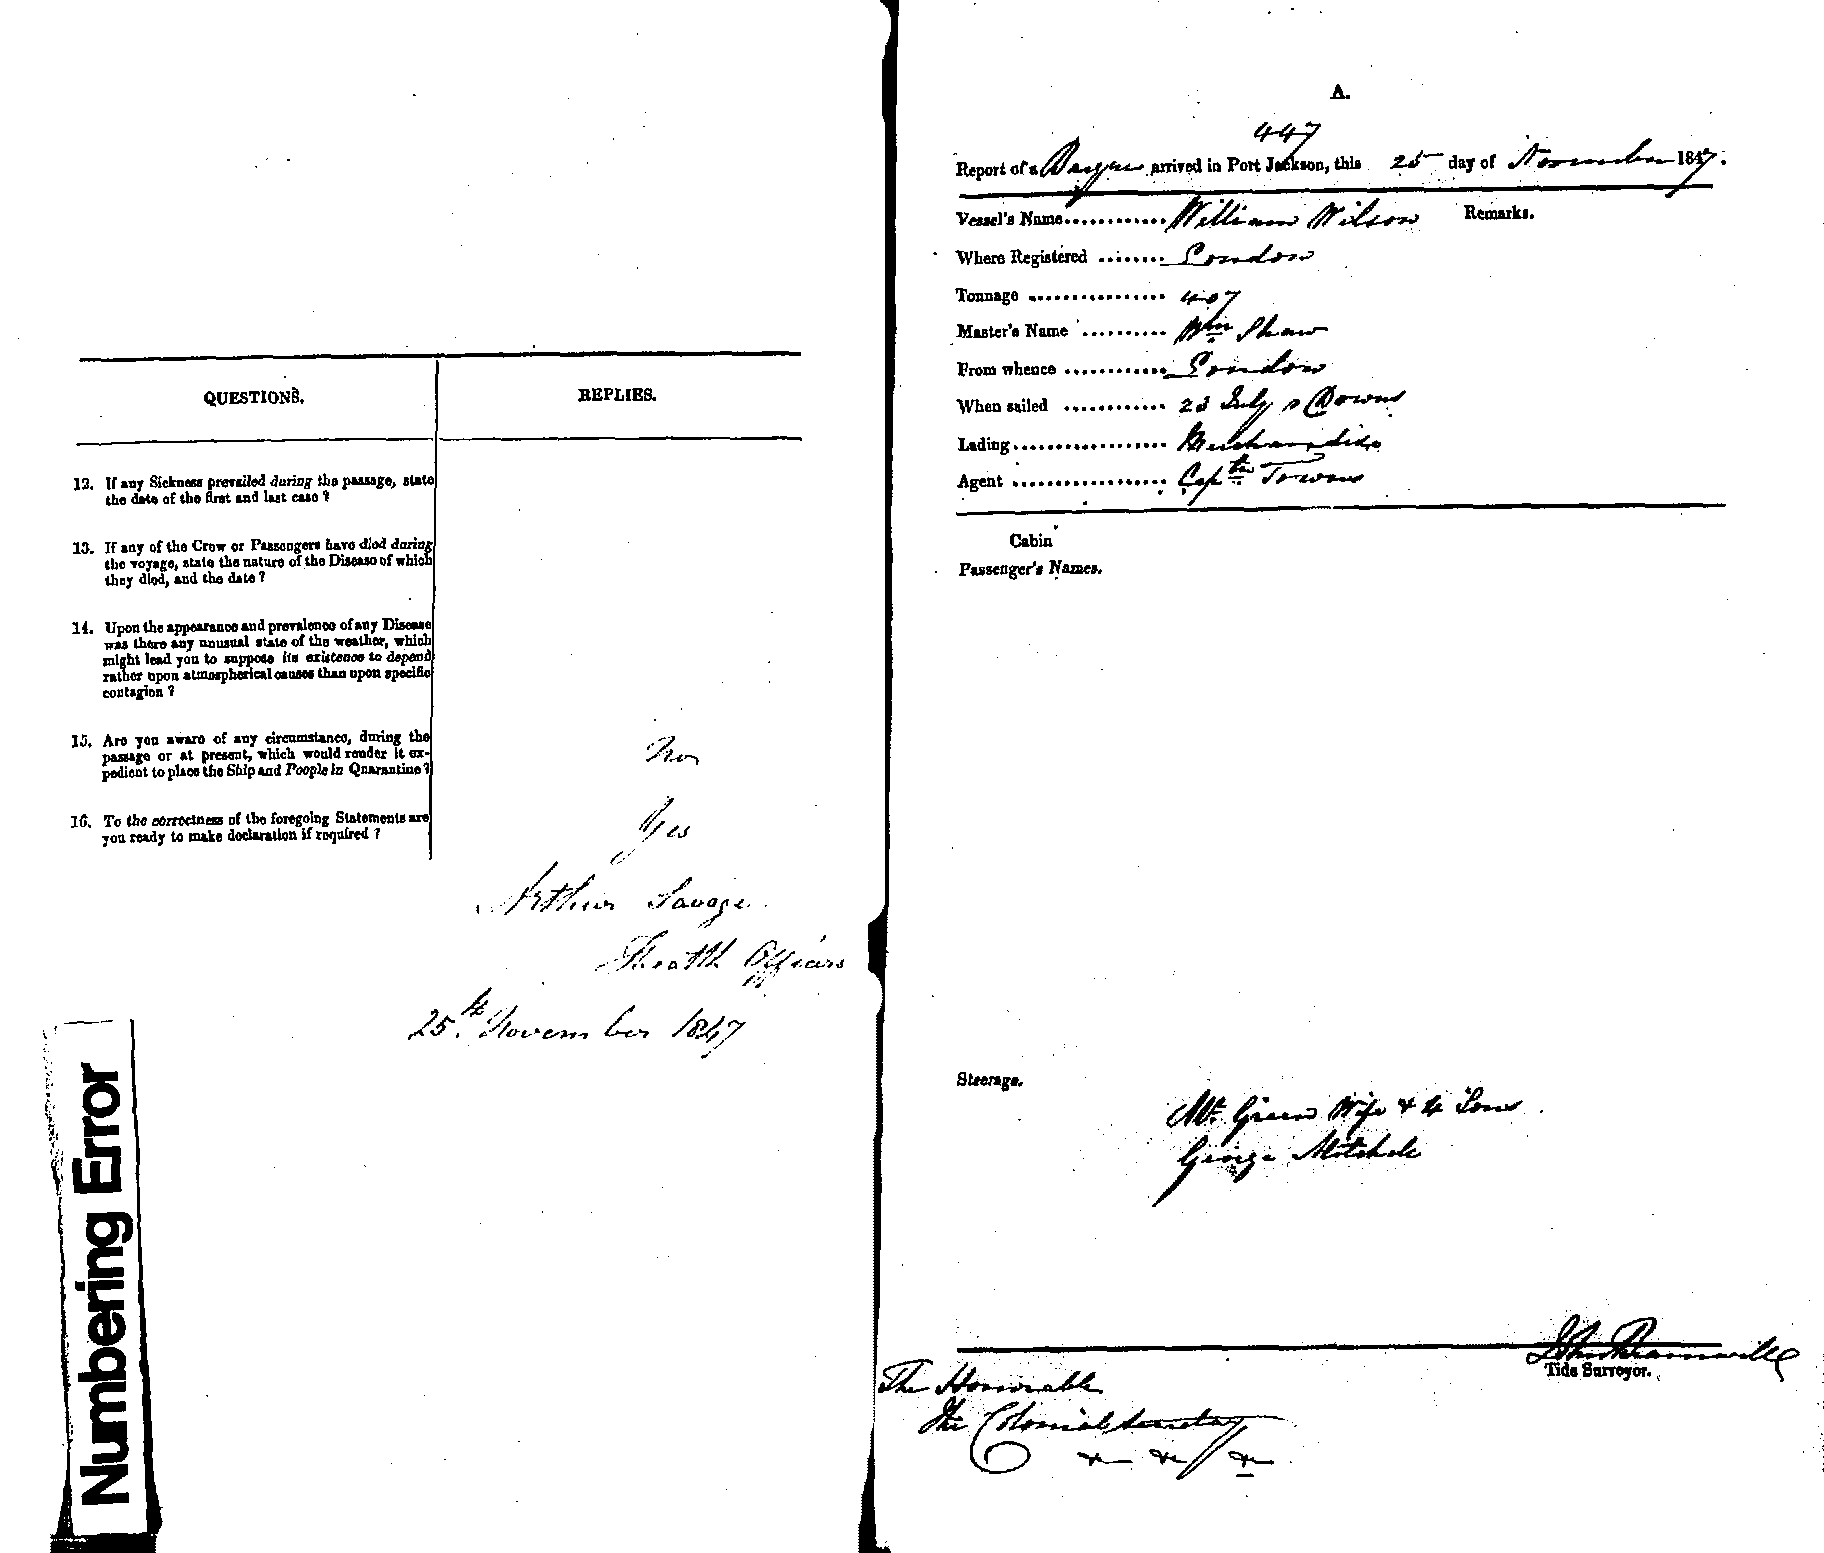 QUESTIONS.
REPLIES.
12. If any Sickness prevailed during the passage, state
the date of the first and last case ?
13. If any of the Crew or Passengers have died during
the voyage, state the nature of the Disease of which
they died, and the date ?
14. Upon the appearance and prevalence of any Disease
was there any unusual state of the weather, which
might lead you to suppose its existence to depend
rather upon atmospherical causes than upon specific
contagion ?
15. Are you aware of any circumstance, during the
passage or at present, which would render it ex-
pedient to place the Ship and People in Quarantine ?
No
16. To the correctness of the foregoing Statements are
you ready to make declaration if required ?
Yes
Arthur Savage
Health Officer
25th November 1847
Numbering Error
A.
447
Report of a Barque arrived in Port Jackson, this 25 day of November 1847.
Vessel's Name............ William Wilson
Remarks.
Where Registered ........ London
Tonnage ................ 407
Master's Name .......... Wm Shaw
From whence ............ London
When sailed ............ 23 July Downs
Lading.................. Merchandise
Agent .................. Captn Towns
Cabin
Passenger's Names.
Steerage.
Mr. Green Wife & 4 Sons
George Mitchele
Tide Surveyor.
The Honorable
The Colonial Secretary
&c &c &c